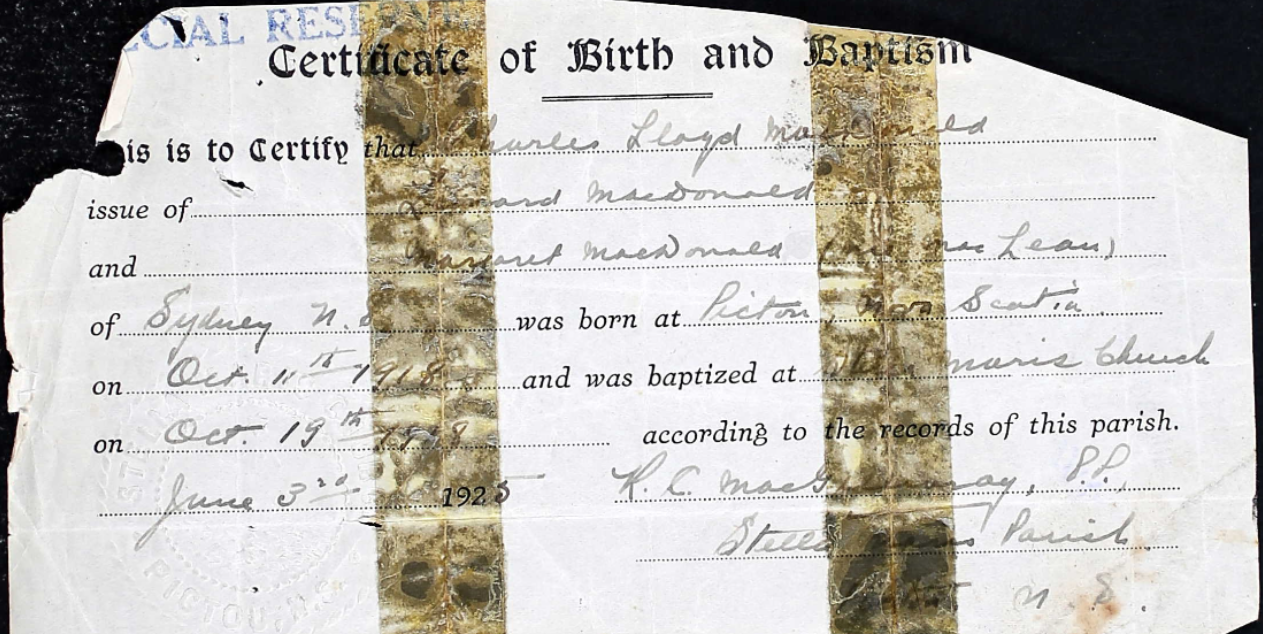 CIAL RES
Certificate of Birth and Baptism
is is to Certify that Charles Lloyd MacDonald
issue of MacDonald
and Margaret MacDonald (nee MacLean)
of Sydney N.S was born at Pictou, Nova Scotia
on Oct. 11th 1918 and was baptized at Stella Maris Church
on Oct. 19th 1918 according to the records of this parish.
June 3rd 1925 R. C. MacGillivray, P.P.,
Stella Maris Parish
N. S.
PICTOU, N.S.